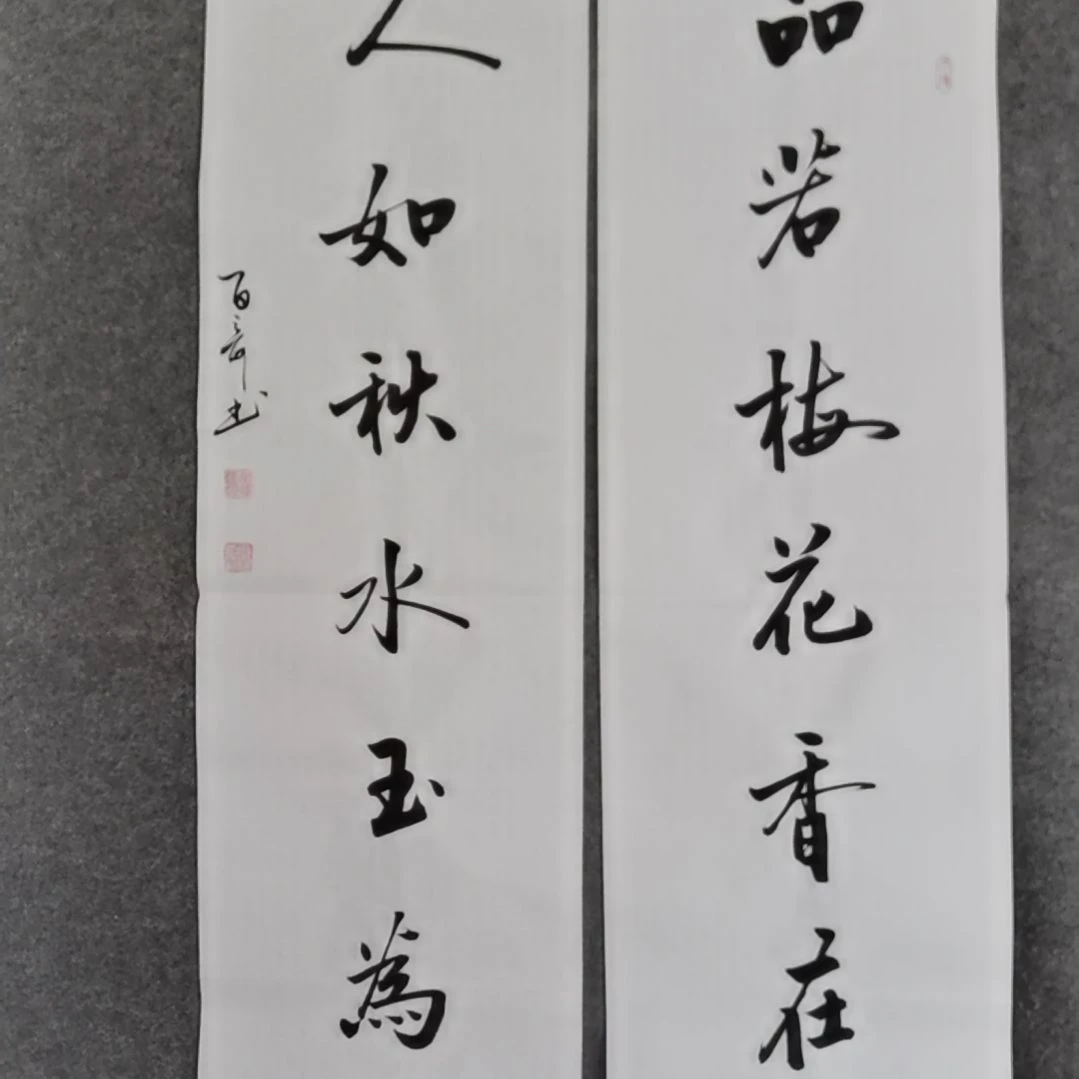 品若梅花香在
人如秋水玉為
百奇书